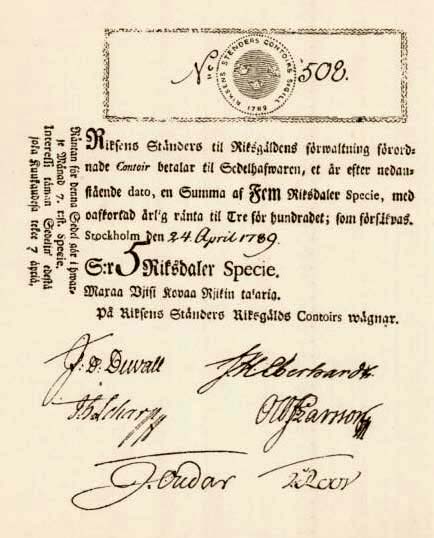 N.° C 508.
RIKSENS STENDERS CONTOIRS SIGILL 1789
Riksens Ständers til Riksgäldens förwaltning förord-
nade Contoir betalar til Sedelhafwaren, et år efter nedan-
stående dato, en Summa af Fem Riksdaler Specie, med
oafkortad årl'g ränta til Tre för hundradet; som försäkras.
Stockholm den 24 April 1789.
S:r 5 Riksdaler Specie.
Maxaa Vjisi Kovaa Rjikin ta'aria.
På Riksens Ständers Riksgälds Contoirs wägnar.
Räntan för denna Sedel gör i hwar-
je Månad 7. rst. Specie.
Interessi tämän Sedelin edestä
jota Kuukaudesa tekee 7 äyriä.
J. D. Duvall
J H Eberhardt